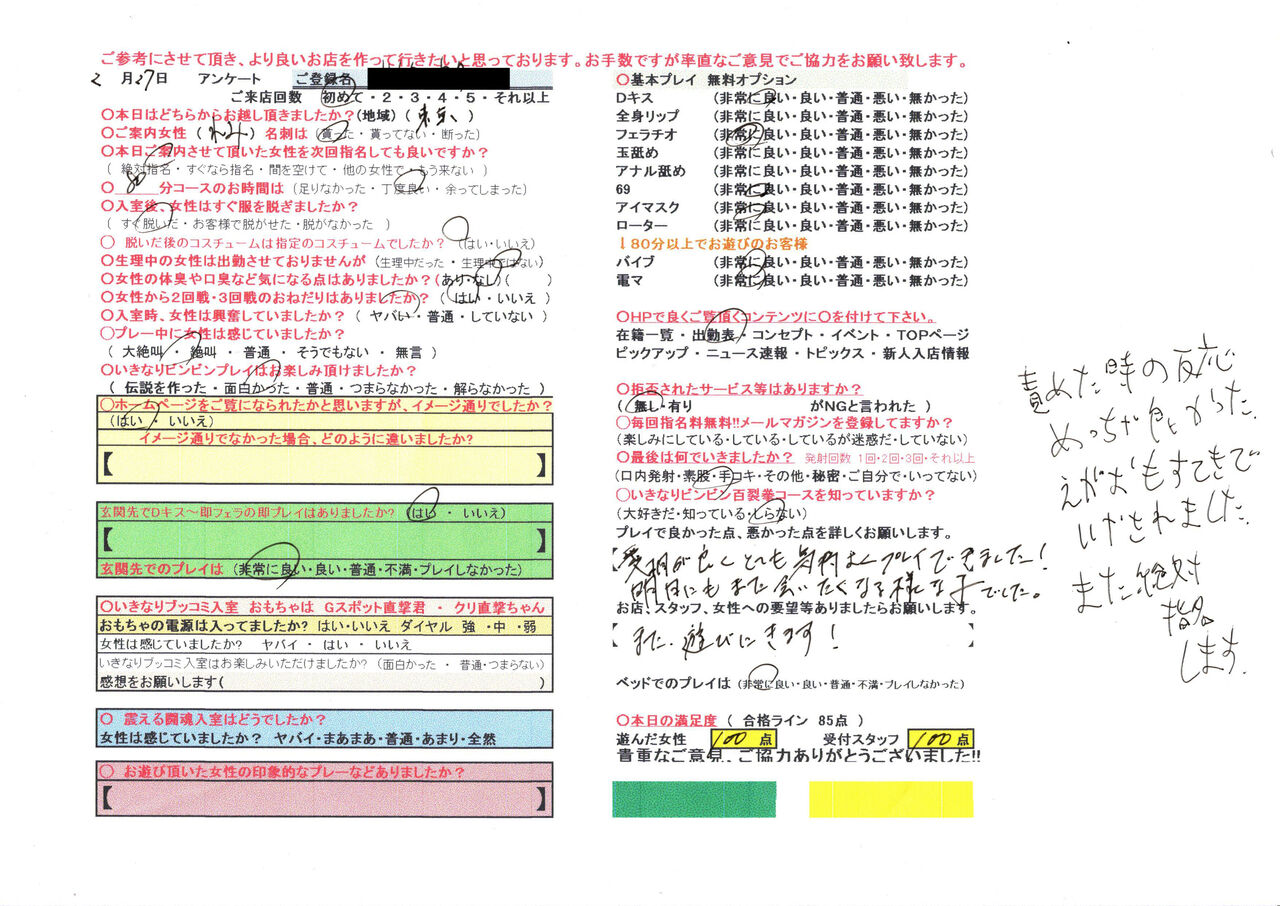 ご参考にさせて頂き、より良いお店を作って行きたいと思っております。お手数ですが率直なご意見でご協力をお願い致します。
2 月27日 アンケート ご登録名
ご来店回数 初めて・2・3・4・5・それ以上
〇本日はどちらからお越し頂きましたか?(地域) ( 東京 )
〇ご案内女性 ( ) 名刺は (貰った・貰ってない・断った)
〇本日ご案内させて頂いた女性を次回指名しても良いですか?
( 絶対指名・すぐなら指名・間を空けて・他の女性で・もう来ない )
〇 80 分コースのお時間は (足りなかった・丁度良い・余ってしまった)
〇入室後、女性はすぐ服を脱ぎましたか?
( すぐ脱いだ・お客様で脱がせた・脱がなかった )
〇 脱いだ後のコスチュームは指定のコスチュームでしたか? (はい・いいえ)
〇生理中の女性は出勤させておりませんが (生理中だった・生理中ではない)
〇女性の体臭や口臭など気になる点はありましたか?(あり・なし)( )
〇女性から2回戦・3回戦のおねだりはありましたか? ( はい・いいえ )
〇入室時、女性は興奮していましたか? ( ヤバい・普通・していない )
〇プレー中に女性は感じていましたか?
( 大絶叫・絶叫・普通・そうでもない・無言 )
〇いきなりビンビンプレイはお楽しみ頂けましたか?
( 伝説を作った・面白かった・普通・つまらなかった・解らなかった )
〇ホームページをご覧になられたかと思いますが、イメージ通りでしたか?
(はい・いいえ)
イメージ通りでなかった場合、どのように違いましたか?
【 】
玄関先でDキス～即フェラの即プレイはありましたか? (はい ・ いいえ)
【 】
玄関先でのプレイは (非常に良い・良い・普通・不満・プレイしなかった)
〇いきなりブッコミ入室 おもちゃは Gスポット直撃君 ・ クリ直撃ちゃん
おもちゃの電源は入ってましたか? はい・いいえ ダイヤル 強 ・中 ・弱
女性は感じていましたか? ヤバイ ・ はい ・ いいえ
いきなりブッコミ入室はお楽しみいただけましたか? (面白かった ・ 普通・つまらない)
感想をお願いします( )
〇 震える闘魂入室はどうでしたか?
女性は感じていましたか? ヤバイ・まあまあ・普通・あまり・全然
〇 お遊び頂いた女性の印象的なプレーなどありましたか?
【 】
〇基本プレイ 無料オプション
Dキス (非常に良い・良い・普通・悪い・無かった)
全身リップ (非常に良い・良い・普通・悪い・無かった)
フェラチオ (非常に良い・良い・普通・悪い・無かった)
玉舐め (非常に良い・良い・普通・悪い・無かった)
アナル舐め (非常に良い・良い・普通・悪い・無かった)
69 (非常に良い・良い・普通・悪い・無かった)
アイマスク (非常に良い・良い・普通・悪い・無かった)
ローター (非常に良い・良い・普通・悪い・無かった)
↓80分以上でお遊びのお客様
バイブ (非常に良い・良い・普通・悪い・無かった)
電マ (非常に良い・良い・普通・悪い・無かった)
〇HPで良くご覧頂くコンテンツに〇を付けて下さい。
在籍一覧・出勤表・コンセプト・イベント・TOPページ
ピックアップ・ニュース速報・トピックス・新人入店情報
〇拒否されたサービス等はありますか?
( 無し・有り がNGと言われた )
〇毎回指名料無料!!メールマガジンを登録してますか?
(楽しみにしている・している・しているが迷惑だ・していない)
〇最後は何でいきましたか? 発射回数 1回・2回・3回・それ以上
(口内発射・素股・手コキ・その他・秘密・ご自分で・いってない)
〇いきなりビンビン百裂拳コースを知っていますか?
(大好きだ・知っている・しらない)
プレイで良かった点、悪かった点を詳しくお願いします。
【愛想が良くとても気持よくプレイできました!
明日にもまた会いたくなる様な子でした。
お店、スタッフ、女性への要望等ありましたらお願いします。
【 また、遊びにきます! 】
ベッドでのプレイは (非常に良い・良い・普通・不満・プレイしなかった)
〇本日の満足度 ( 合格ライン 85点 )
遊んだ女性 100 点 受付スタッフ 100 点
貴重なご意見、ご協力ありがとうございました!!
責めた時の反応
めっちゃ良かった。
えがおもすてきで
いやされました。
また絶対
指名
します。